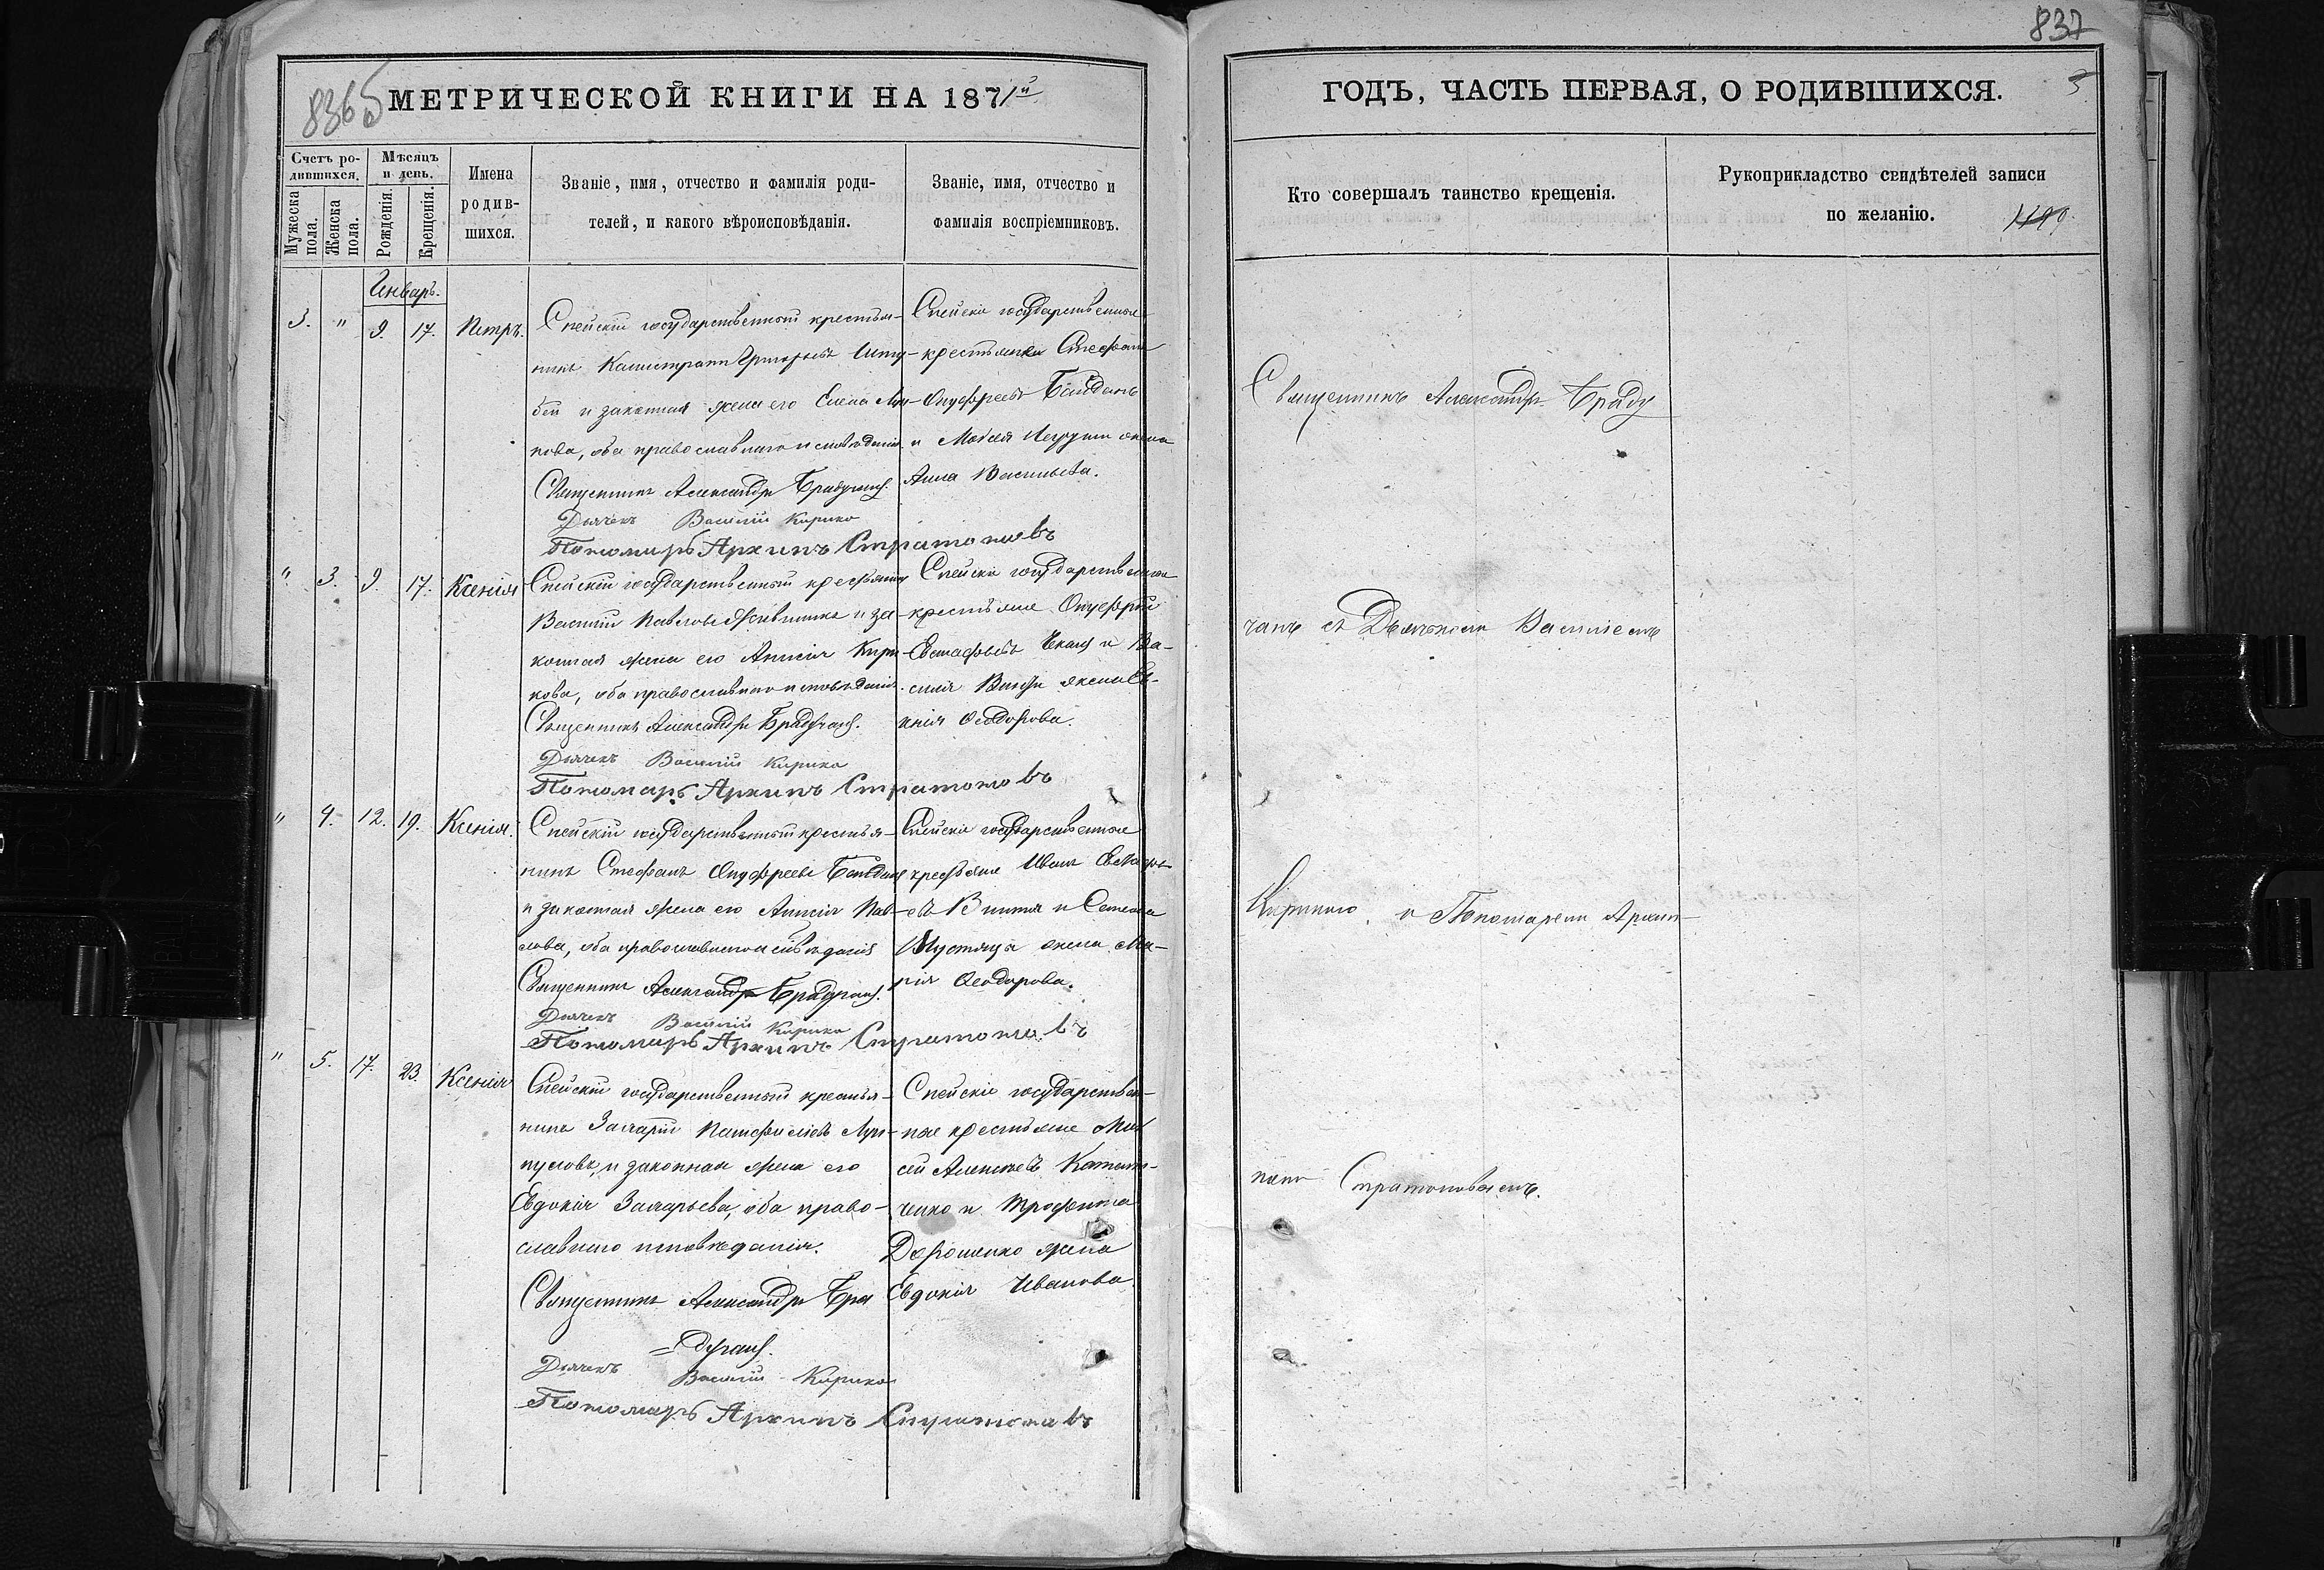 836б
МЕТРИЧЕСКОЙ КНИГИ НА 1871й
Счетъ ро-
дившихся.
Мѣсяцъ
и день.
Мужеска
пола.
Женска
пола.
Рожденія.
Крещенія.
Имена
родив-
шихся.
Званіе, имя, отчество и фамилія роди-
телей, и какого вѣроисповѣданія.
Званіе, имя, отчество и
фамилія воспріемниковъ.
Январь.
3. " 9. 17. Петръ.
Спейскій государственный крестья-
нинъ Калистратъ Григорьевъ
и законная жена его Елена Лу-
кова, оба православнаго исповѣданія.
Священникъ Александръ Брадучанъ.
Дьячекъ Василій Кирико
Пономаръ Архипъ Стратоновъ
Спейскіе государственные
крестьянинъ Стефанъ
Онуфреевъ Байданъ
и Моисея жена
Анна Васильева.
" 3. 9. 17. Ксенія
Спейскій государственный крестьянинъ
Василій Павловъ и за-
конная жена его Анисія Кири-
кова, оба православнаго исповѣданія.
Священникъ Александръ Брадучанъ.
Дьячекъ Василій Кирико
Пономаръ Архипъ Стратоновъ
Спейскіе государственные
крестьяне Онуфрій
Евстафьевъ и Ва-
силія жена Ев-
кнія Ѳеодорова.
" 4. 12. 19. Ксенія.
Спейскій государственный крестья-
нинъ Стефанъ Онуфреевъ Байданъ
и законная жена его Анисія Пав-
лова, оба православнаго исповѣданія
Священникъ Александръ Брадучанъ.
Дьячекъ Василій Кирико
Пономаръ Архипъ Стратоновъ
Спейскіе государственные
крестьяне Иванъ Евстафь-
евъ и Семена
жена Ма-
рія Ѳеодорова.
" 5. 17. 23. Ксенія
Спейскій государственный крестья-
нинъ Захарій Памфиловъ Луп-
пуловъ, и законная жена его
Евдокія Захарьева, оба право-
славнаго исповѣданія.
Священникъ Александръ Бра
=дучанъ.
Дьячекъ Василій Кирико
Пономаръ Архипъ Стратоновъ
Спейскіе государствен-
ные крестьяне Мои
сей Алексѣевъ
и Трофима
Дорошенко жена
Евдокія Иванова
837
ГОДЪ, ЧАСТЬ ПЕРВАЯ, О РОДИВШИХСЯ.
Кто совершалъ таинство крещенія.
Рукоприкладство свидѣтелей записи
по желанію.
Священникъ Александръ Браду
чанъ съ Дьячкомъ Василіемъ
Кирикою и Пономаремъ Архип-
помъ Стратоновымъ.